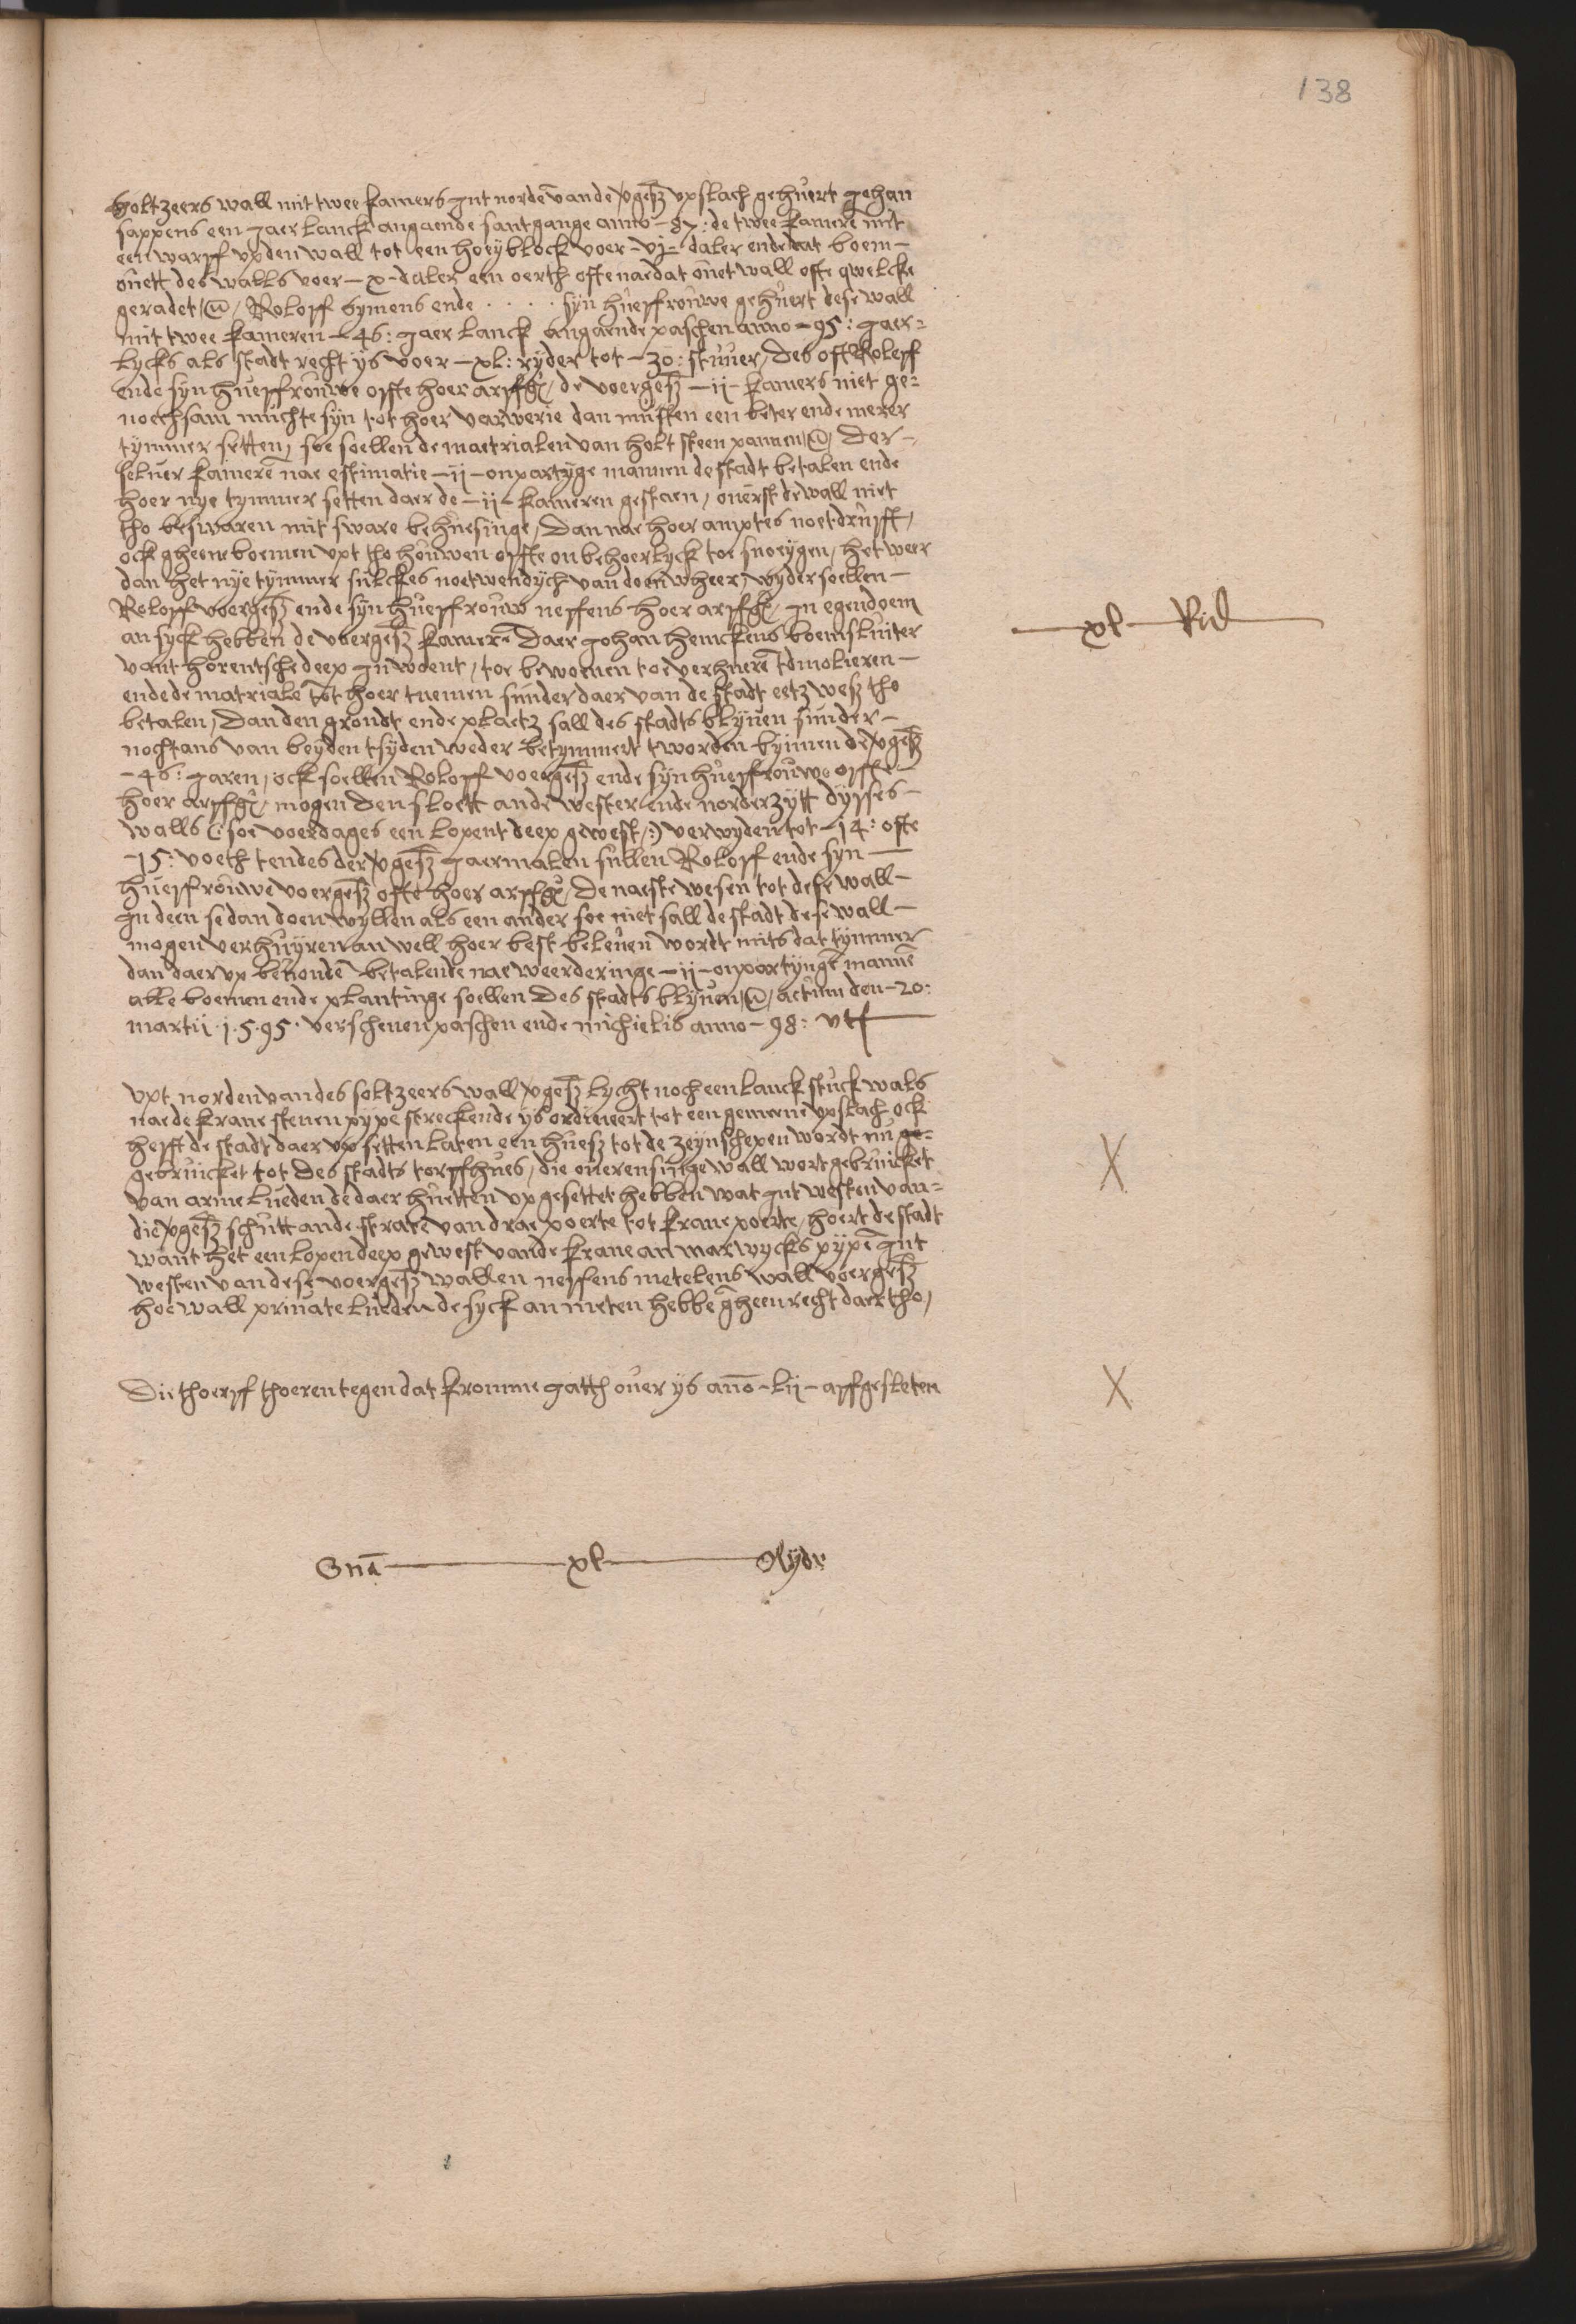 138
Soltzeers wall mit twee kamers Int nordē vande vgesz upslach gehuert Johan
sappens een Jaer lanck angaende santgange anno - 87: de twee kamerē mit
een warff up den wall tot een hoeyblock voer - vj - daler ende dat boem -
ouett des walls voer - x - daler een oerth ofte nae dat ouet wall ofte qwelcke
geradet Roloff Symens ende . . . . syn huesffrouwe gehuert dese wall
mit twee kameren - 46: Jaer lanck angaende paschen anno - 95: Jaer=
lycks als stadt recht ys voer - xl: ryder tot - 30: stuver / des oft Roloff
ende syn huesffrouwe offte hoer arffg de voergesz - ij - kamers niet ge=
noechsam muchte syn tot hoer varwerie dan musten een beter ende merer
tymmer setten, soe soellen de maetrialen van holt steen pannen der -
seluer kamerē nae estimatie - ij - onpartyge mannen de stadt betalen ende
hoer nye tymmer setten daer de - ij - kameren gestaen / ouerst de wall niet
tho beswaren mit sware behuesinge / Dan nae hoer amptes noetdrufft /
ock gheene boemen upt tho houwen offte onbehoerlyck toe snoeygen / het weer
dan het nye tymmer sulckes noetwendych van doen wheer, wyder soellen -
Roloff voergesz ende syn huesffrouw neffens hoer arffg In egendoem
an syck hebben de voergesz kamerē Daer Johan Henickens boemsluiter
vant horentsche deep In woent / toe bewoenen toe verhuerē tdmolieren -
ende de matrialē tot hoer tnemen sunder daer van de stadt eetz wesz tho
betalen / Dan den grondt ende plaetz sall des stadts blyuen sunder -
nochtans van beyden tsyden weder betymmert tworden bynnen de vgesz
- 46: Jaren / ock soellen Roloff voergesz ende syn huesffrouwe offte
hoer arffg mogen den sloett ande wester ende norderzytt dysses -
walls (: soe voerdages een lopent deep gewest :) verwyden tot - 14: ofte
- 15: voeth tendes der vgesz Jaermalen sullen Roloff ende syn -
huesffrouwe voergesz ofte hoer arffg De naeste wesen tot dese wall -
In deen se dan doen wyllen als een ander soe niet sall de stadt dese wall -
mogen verhuyren an well hoer best beleuen wordt mits dat tymmer
dan daer up beuonden betalende nae weerderinge - ij - onpartyngē mannē
alle boemen ende plantinge soellen des stadts blyuen actum den - 20:
martij . 1.5.95. verschenen paschen ende michielis anno - 98: utf
xl Rid
Upt norden van des soltzeers wall vgesz lycht noch een lanck stuck wals
nae de krane stenen pype streckende ys ordineert tot een gemeine upslach ock
hefft de stadt daer up setten laten een huesz tot de zeynschepen wordt nu ge=
gebruicket tot des stadts torffhues / die ouerensinge wall wort gebruicket
van arme lueden de daer huetten up gesettet hebben wat Int westen van=
die vgesz schutt ande strate van drae poerte tot krane poerte / hoert de stadt
want het een lopen deep gewest vande krane an marwycks pypē Int
westen van dese voergesz wallen neffens metelens wall voergesz
hoe wall priuate lueden de syck an meten hebbē gheen recht daer tho /
X
Die thoerff thoeren tegen dat kromme gatth ouer ys ano - lij - affgesleten
X
Sma xl Ryder